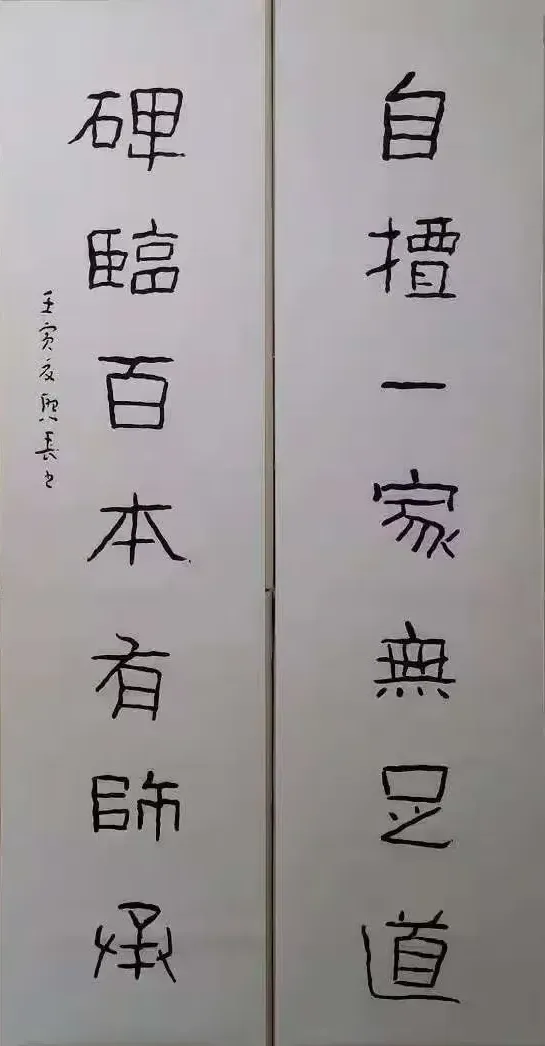 自擅一家無足道
碑臨百本有師承
壬寅夏熙長書